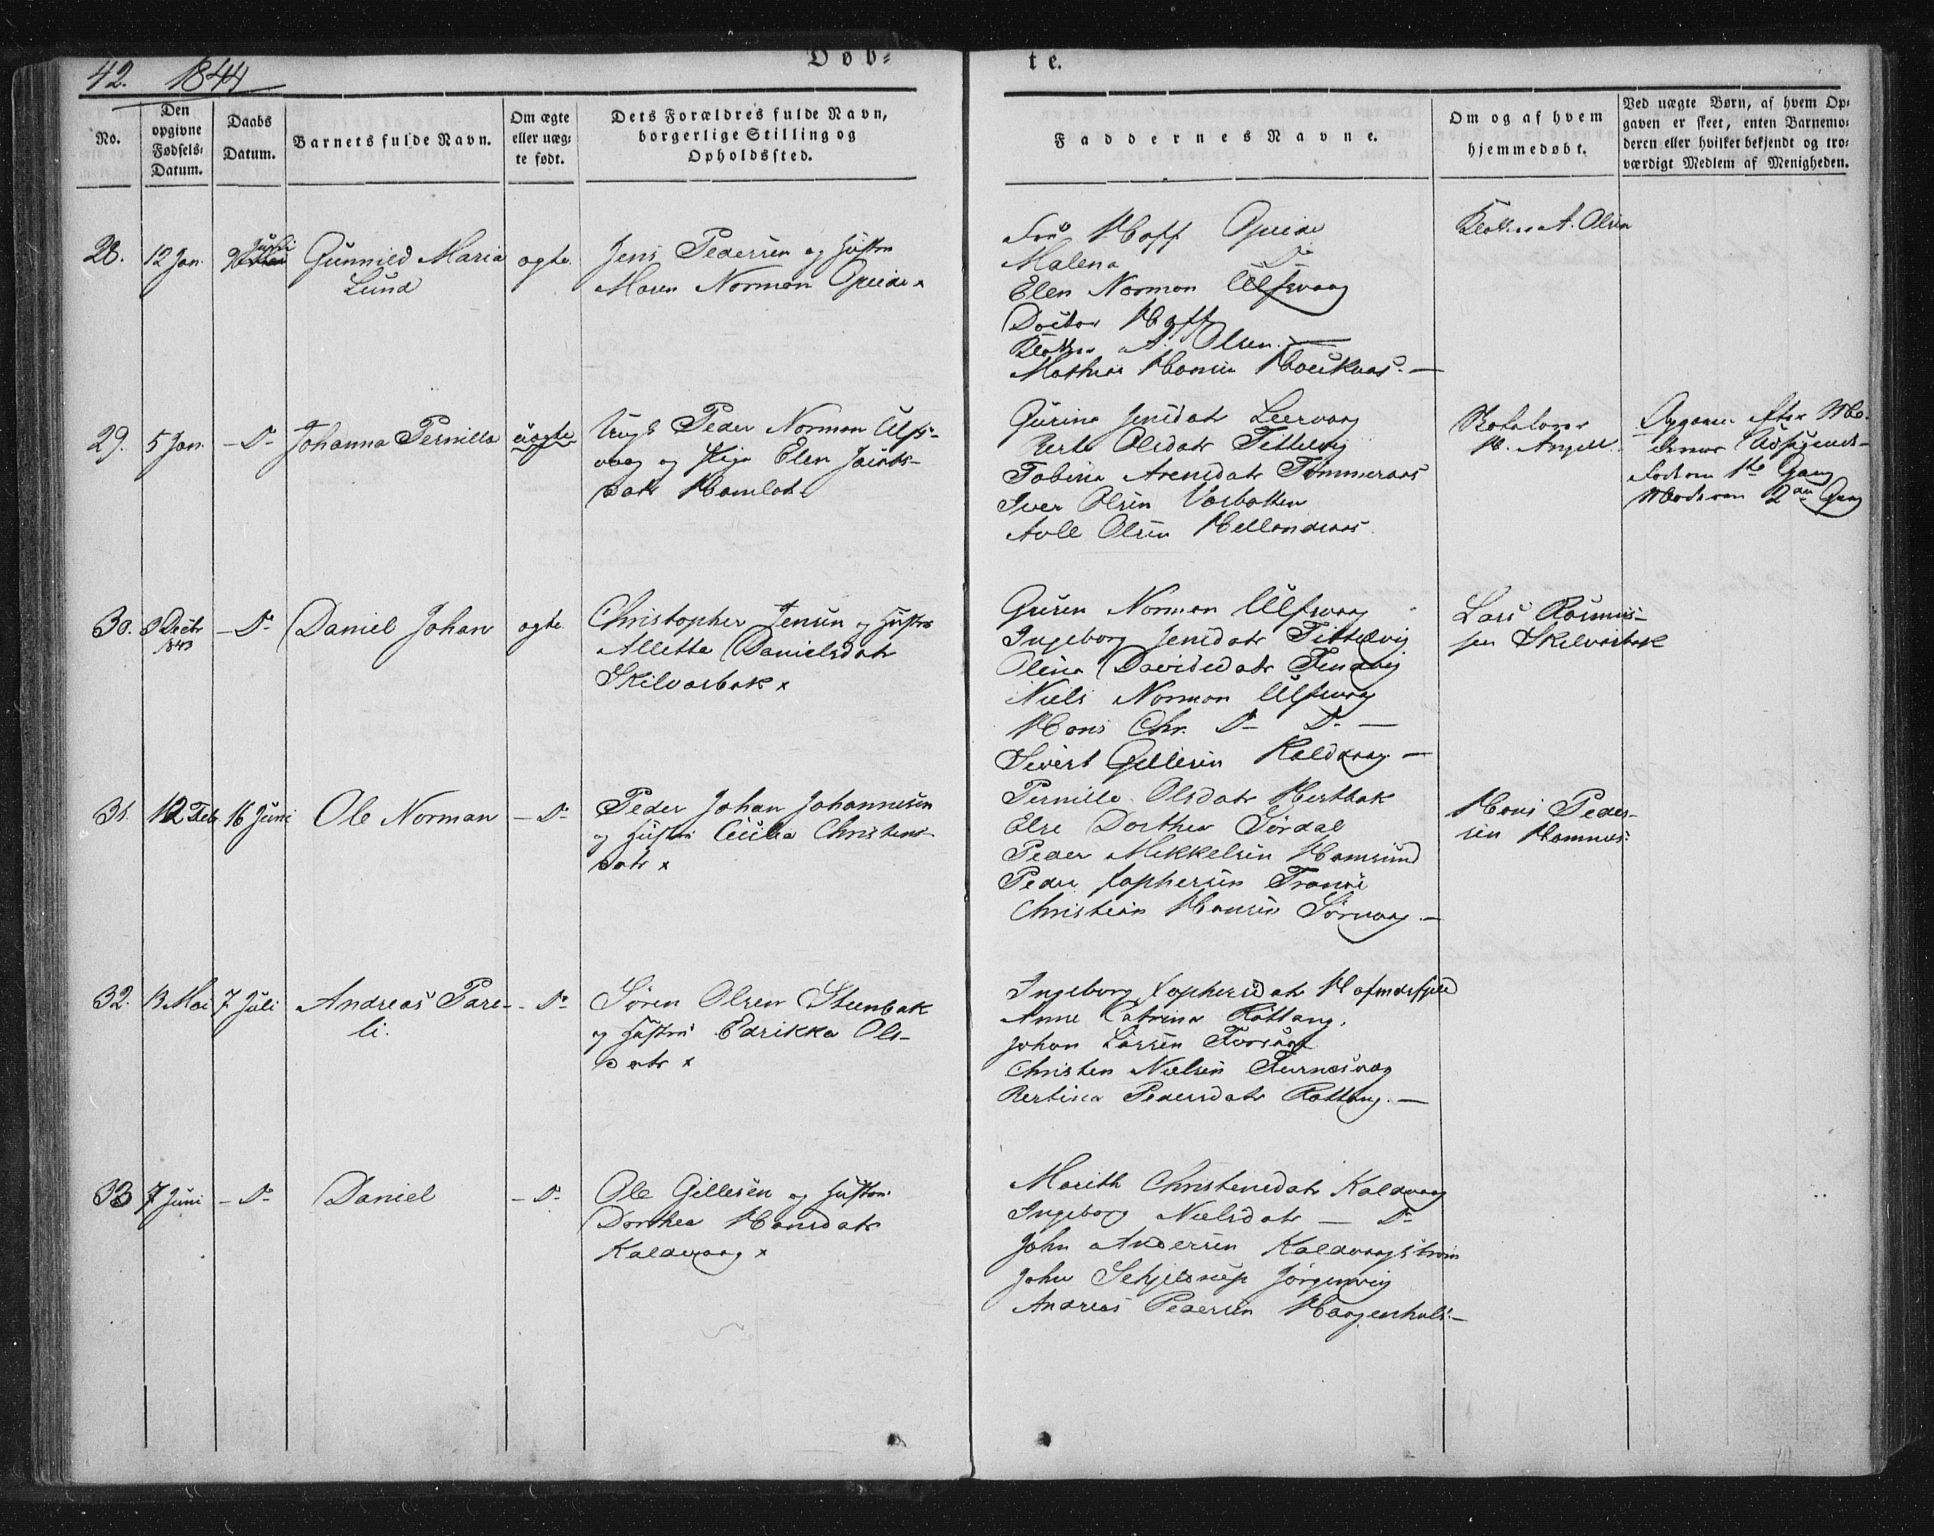 42. 1844
Døb-
te.
No.
Den opgivne Fødsels-Datum.
Daabs Datum.
Barnets fulde Navn.
Om ægte eller uægte født.
Dets Forældres fulde Navn, borgerlige Stilling og Opholdssted.
Faddernes Navne.
Om og af hvem hjemmedøbt.
Ved uægte Børn, af hvem Opgaven er skeet, enten Barnemoderen eller hvilket bekjendt og troværdigt Medlem af Menigheden.
28. 12 Jan. Gunnild Maria ægte
Lund
Jens Pedersen og Hustru
Maren Norman
Hoff
Malena Do
Elen Norman Ulfsvaag
Doctor Hoff
A. Olsen
A. Olsen
29. 5 Jan. – Do Johanna Pernilla uægte
Peder Norman Ulfs-
vaag og Pige Elen Jacobs-
datr
Jensdatr Leervaag
Olsdatr Tittelvig
Tobina Arensdatr Tømmeraas
Iver Olsen
Olsen Hellandsaas
Angell
Opgaven efter Mo-
derens Udsigende
Faderen 1te Gang
Moderen 2den Gang
30. Decbr – Do Daniel Johan ægte
1843
Christopher Jensen og Hustru
Allette Danielsdatr
Skilvasbak x
Guren Norman Ulfsvaag
Ingeborg Jensdatr Tittelvig
Olina Davidsdatr
Niels Norman Ulfsvaag
Hans Chr. Do Do –
Sivert Gillesen Kaldvaag –
Lars Rasmus-
sen Skilvasbak
31. 12 Feb 16 Juni Ole Norman – Do
Peder Johan Johannesen
og Hustru Cicilia Christens-
datr x
Pernille Olsdatr Hestbak
Else Dorthea Sørdal
Peder Mikkelsen Hamsund
Peder Tophersen Tranøe
Christian Hansen Sørvaag. –
Hans Peder-
sen Hamnes
32. 13 Mai 7 Juli Andreas Pare- – Do
li.
Søren Olsen Steenbak
og Hustru Edrikka Ols-
datr x
Ingeborg Tophersdatr
Anne Catrina Rottang.
Johan Larsen
Christen Nielsen
Bertina Pedersdatr Rottang. –
33 7 Juni – Do Daniel – Do
Ole Gillesen og Hustru
Dorthea Hansdatr
Kaldvaag x
Marith Christensdatr Kaldvaag
Ingeborg Nielsdatr – Do
John Andersen Kaldvaagstrøm
John Schjelsrup Jørgenvig
Andreas Pedersen Haagenhals –